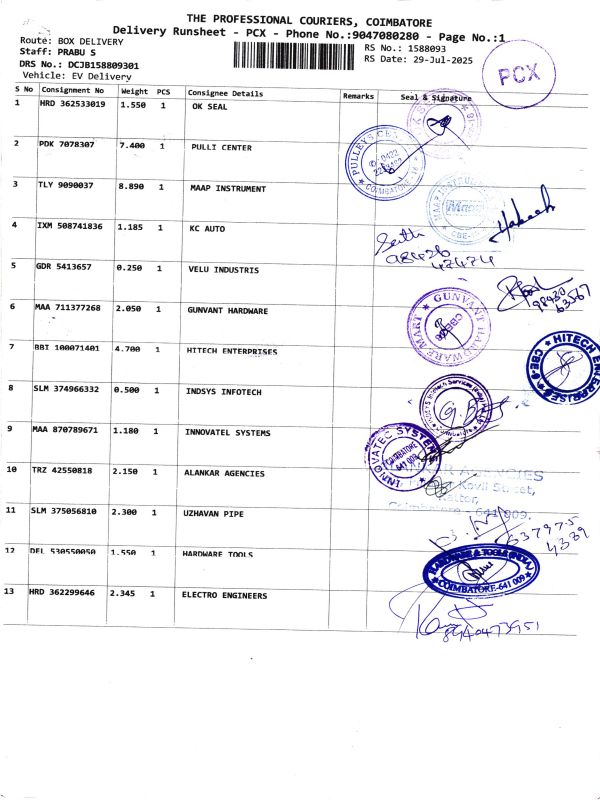 THE PROFESSIONAL COURIERS, COIMBATORE
Delivery Runsheet - PCX - Phone No.:9047080280 - Page No.:1
Route: BOX DELIVERY
Staff: PRABU S
DRS No.: DCJB158809301
Vehicle: EV Delivery
RS No.: 1588093
RS Date: 29-Jul-2025
PCX
S No Consignment No Weight PCS Consignee Details Remarks Seal & Signature
1 HRD 362533019 1.550 1 OK SEAL
2 PDK 7078307 7.400 1 PULLI CENTER
PULLEYS CE
0422
COIMBATORE
3 TLY 9090037 8.890 1 MAAP INSTRUMENT
MAAP
CBE
4 IXM 508741836 1.185 1 KC AUTO
98426
47474
5 GDR 5413657 0.250 1 VELU INDUSTRIS
98430
63567
6 MAA 711377268 2.050 1 GUNVANT HARDWARE
GUNVANT HARDWARE MART
7 BBI 100071401 4.700 1 HITECH ENTERPRISES
HITECH ENTERPRISES
CBE-9
8 SLM 374966332 0.500 1 INDSYS INFOTECH
9 MAA 870789671 1.180 1 INNOVATEL SYSTEMS
INNOVATEC SYSTEMS
COIMBATORE
641 009
10 TRZ 42550818 2.150 1 ALANKAR AGENCIES
AGENCIES
Kovil Street,
Coimbatore - 641 009.
11 SLM 375056810 2.300 1 UZHAVAN PIPE
337975
4389
12 DEL 530550050 1.550 1 HARDWARE TOOLS
HARDWARE & TOOLS (INDIA)
COIMBATORE-641 009
13 HRD 362299646 2.345 1 ELECTRO ENGINEERS
8940473951